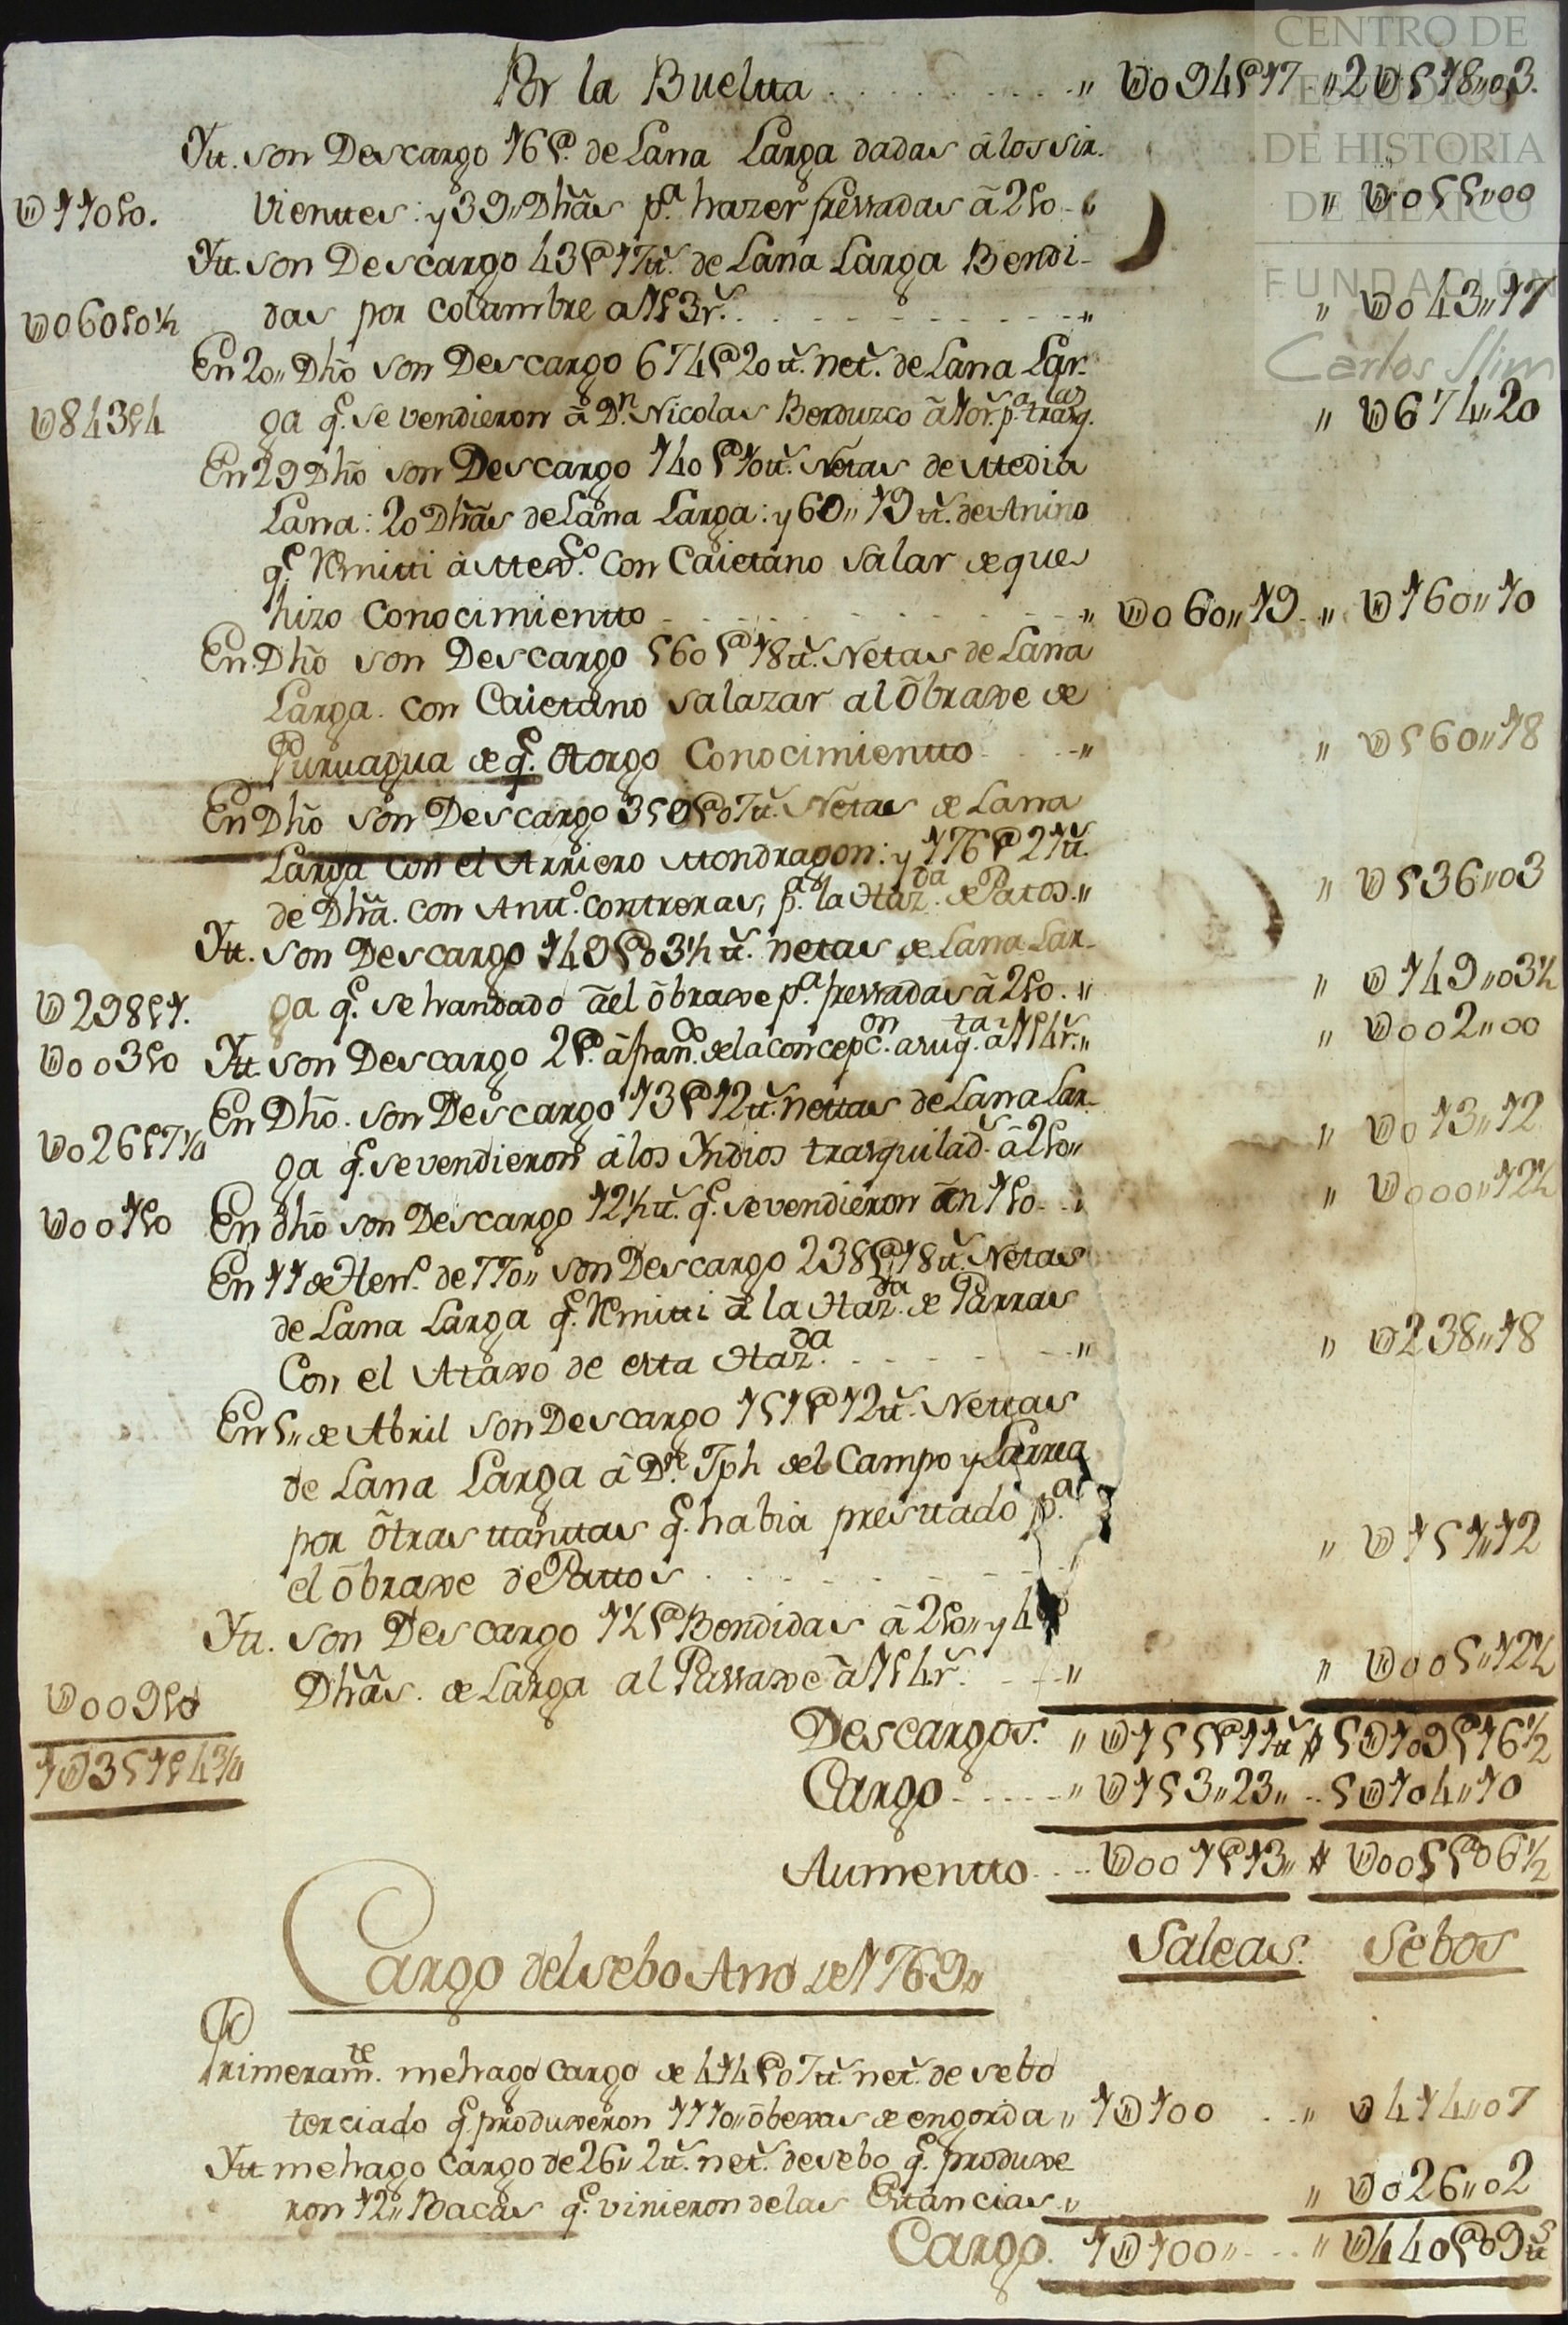 CENTRO DE
ESTUDIOS
DE HISTORIA
DE MÉXICO
FUNDACIÓN
Carlos Slim
Por la Buelta . . . . . . . . " U094@17 " 2U518"03.
Ytt. son Descargo 16@. de Lana Larga dadas â los sir-
U110p0. vientes: y 39" Dhâs pª. hazer fressadas â 2p0 " U055"00
Ytt. son Descargo 43@17tt.ˢ de Lana Larga Bendi-
U060p0½ das por colambre a 1p3rˢ. " U043"17
En 20" Dho son Descargo 674@20tt.ˢ netˢ. de Lana Lar-
U843p4 ga q.ᵉ se vendieron â Dⁿ. Nicolas Berduzco â 10rˢ. pª. " U674"20
En 29 Dho son Descargo 140@10tt.ˢ Netas de Media
Lana: 20 Dhâs de Lana Larga: y 60" 19tt.ˢ de Anino
q.ᵉ Remitti à Mexᶜᵒ. con Caietano Salazar de que
hizo Conocimientto " U060"19 " U160"10
En Dho son Descargo 560@18tt.ˢ Netas de Lana
Larga. con Caietano Salazar al Ôbraxe de
Puruagua de q.ᵉ Otorgo Conocimientto " U560"18
En Dho son Descargo 359@07tt.ˢ Netas de Lana
Larga con el Arriero Mondragon: y 176@21tt.ˢ
de Dhâ. con Antt.º contreras, pª. la Hazᵈᵃ. de Patos." " U536"03
Ytt. son Descargo 149@03½tt.ˢ netas de Lana Lar-
U298p1. ga q.ᵉ se han dado âel ôbraxe pª. fressadas â 2p0. " " U149"03½
U003p0 Ytt son Descargo 2@. â franᶜᵒ. de la concepcᵒⁿ. a su q.ᵗᵃ a 1p4rˢ." " U002"00
En Dho. son Descargo 13@12tt.ˢ nettas de Lana Lar-
U026p7¼ ga q.ᵉ se vendieron â los Yndios trasquiladˢ. â 2p0" " U013"12
U001p0 En dho son Descargo 12½tt.ˢ q.ᵉ se vendieron ân 1p0 " U000"12½
En 11 de Henº. de 770" son Descargo 238@18tt.ˢ Netas
de Lana Larga q.ᵉ Remitti â la Hazᵈᵃ. de Parras
Con el Ataxo de esta Hazᵈᵃ. " " U238"18
En 5" de Abril son Descargo 151@12tt.ˢ Nettas
de Lana Larga â Dⁿ. Jph del Campo y Larrea
por ôtras ttanttas q.ᵉ habia presttado pª.
el ôbraxe de Pattos " U151"12
Ytt. son Descargo 1½@ Bendidas â 2p0" y 4@
U009p0 Dhâs. de Larga al Passaxe â 1p4rˢ. " " U005"12½
1U351p4¾ Descargos. " U155@11tt.ˢ # 5U109@16½
Cargo " U153"23" 5U104"10
Aumentto U001@13" # U005@06½
Cargo del sebo Ano de 1769" Saleas. Sebos
Primeramᵗᵉ. me hago cargo de 414@07tt.ˢ netˢ. de sebo
terciado q.ᵉ produxeron 1110" ôbexas de engorda " 1U100 " U414"07
Ytt me hago cargo de 26" 2tt.ˢ netˢ. de sebo q.ᵉ produxe
ron 12" Bacas q.ᵉ vinieron de las Estancias." " U026"02
Cargo. 1U100" " U440@09tt.ˢ